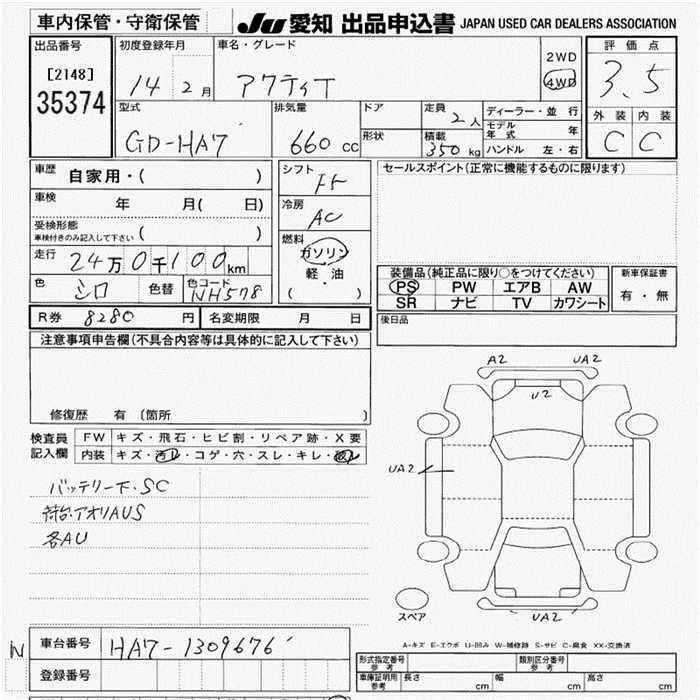 車内保管・守衛保管 JU 愛知 出品申込書 JAPAN USED CAR DEALERS ASSOCIATION
出品番号 初度登録年月 車名・グレード 評価点
[2148] 14 2月 アクティT 2WD 4WD 3.5
35374
型式 排気量 ドア 定員 2人 ディーラー・並行 外装 内装
GD-HA7 660cc 形状 積載 350kg モデル年式 年 C C
ハンドル 左・右
車歴 自家用・( ) シフト F5 セールスポイント(正常に機能するものに限ります)
車検 年 月( 日) 冷房 AC
受検形態
車検付きのみ記入して下さい ( )
燃料 ガソリン 軽・油 ( )
走行 24万0千100km
装備品(純正品に限り○をつけてください) 新車保証書
色 シロ 色替 色コード NH578 PS PW エアB AW 有・無
SR ナビ TV カワシート
R券 8280円 名変期限 月 日 後日品
注意事項申告欄(不具合内容等は具体的に記入して下さい)
修復歴 有 〔箇所 〕
検査員 記入欄 FW キズ・飛石・ヒビ割・リペア跡・X要
内装 キズ・汚レ・コゲ・穴・スレ・キレ・
バッテリー下・SC
荷台アオリAUS
各AU
A2 UA2
U2
UA2
スペア UA2
A-キズ E-エクボ U-凹み W-補修跡 S-サビ C-腐食 XX-交換済
N 車台番号 HA7-1309676
登録番号
形式指定番号 参考 類別区分番号 参考
車庫証明用 参考 長さ cm 幅 cm 高さ cm